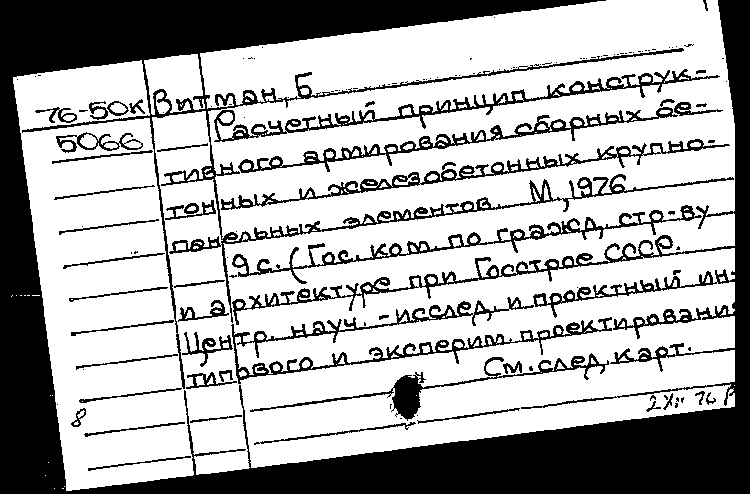 76-50к Витман, Б.
5066 Расчетный принцип конструк-
тивного армирования сборных бе-
тонных и железобетонных крупно-
панельных элементов. М., 1976.
9 с. (Гос. ком. по гражд. стр-ву
и архитектуре при Госстрое СССР.
Центр. науч.-исслед. и проектный ин-
типового и эксперим. проектирования
См. след. карт.
8